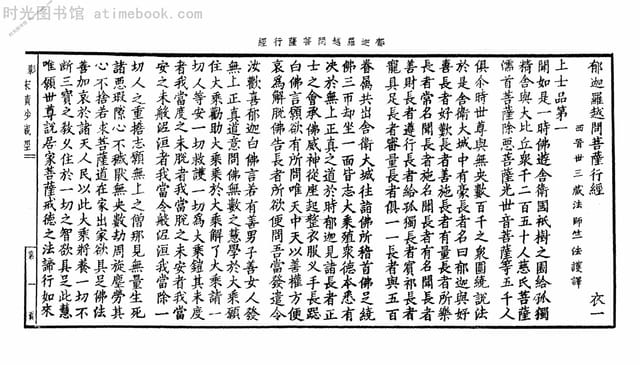 郁迦羅越問菩薩行經
郁迦羅越問菩薩行經 衣一
西晉世三藏法師竺法護譯
上士品第一
聞如是一時佛遊舍衛國祇樹之園給孤獨
精舍與大比丘衆千二百五十人慈氏菩薩
濡首菩薩除惡菩薩光世音菩薩等五千人
俱尒時世尊與無央數百千之衆圍繞說法
於是舍衛大城中有豪長者名曰郁迦與好
善長者好歎長者善施長者有量長者所樂
長者常名聞長者施名聞長者有名聞長者
善財長者遵行長者給孤獨長者賔祁長者
寵具足長者審量長者俱一一長者與五百
眷屬共出舍衛大城往詣佛所稽首佛足繞
佛三帀却坐一面皆志大乘殖衆德本悉有
決於無上正真之道於時郁迦見諸長者正
士之會承佛威神從座起整衣服叉手長跪
白佛言願欲有所問唯天中天以善權方便
哀為解說佛告長者所欲便問吾當發遣令
汝歡喜郁迦白佛言若有善男子善女人發
無上正真道意問佛無數之慧學於大乘頥
住大乘勸助大乘乘於大乘解了大乘請一
切人等安一切救護一切為大乘鎧其未度
者我當度之未脫者我當脫之未安者我當
安之未般泥洹者我當令般泥洹我當除一
切人之重擔志願無上之僧那見無量生死
諸惡瑕隙心不猒猒無央數劫周旋塵勞其
心不捨若求菩薩道在家出家欲具足佛法
善加哀於諸天人民以此大乘將養一切不
斷三寶之教久住於一切之智欲具足此慧
唯願世尊說居家菩薩戒德之法諦行如來
影宋磧砂藏經
第一
時光图书馆